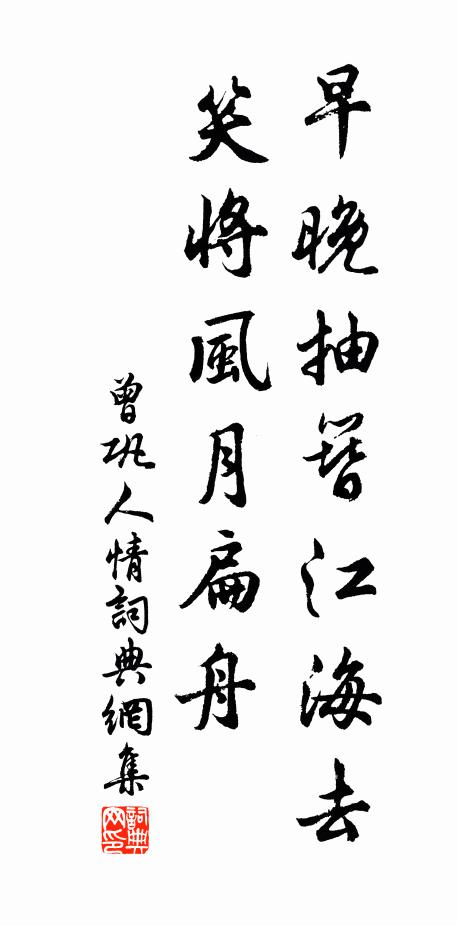 早晚抽簪江海去
笑將風月扁舟
曾巩人情詞典網集
詞典网印